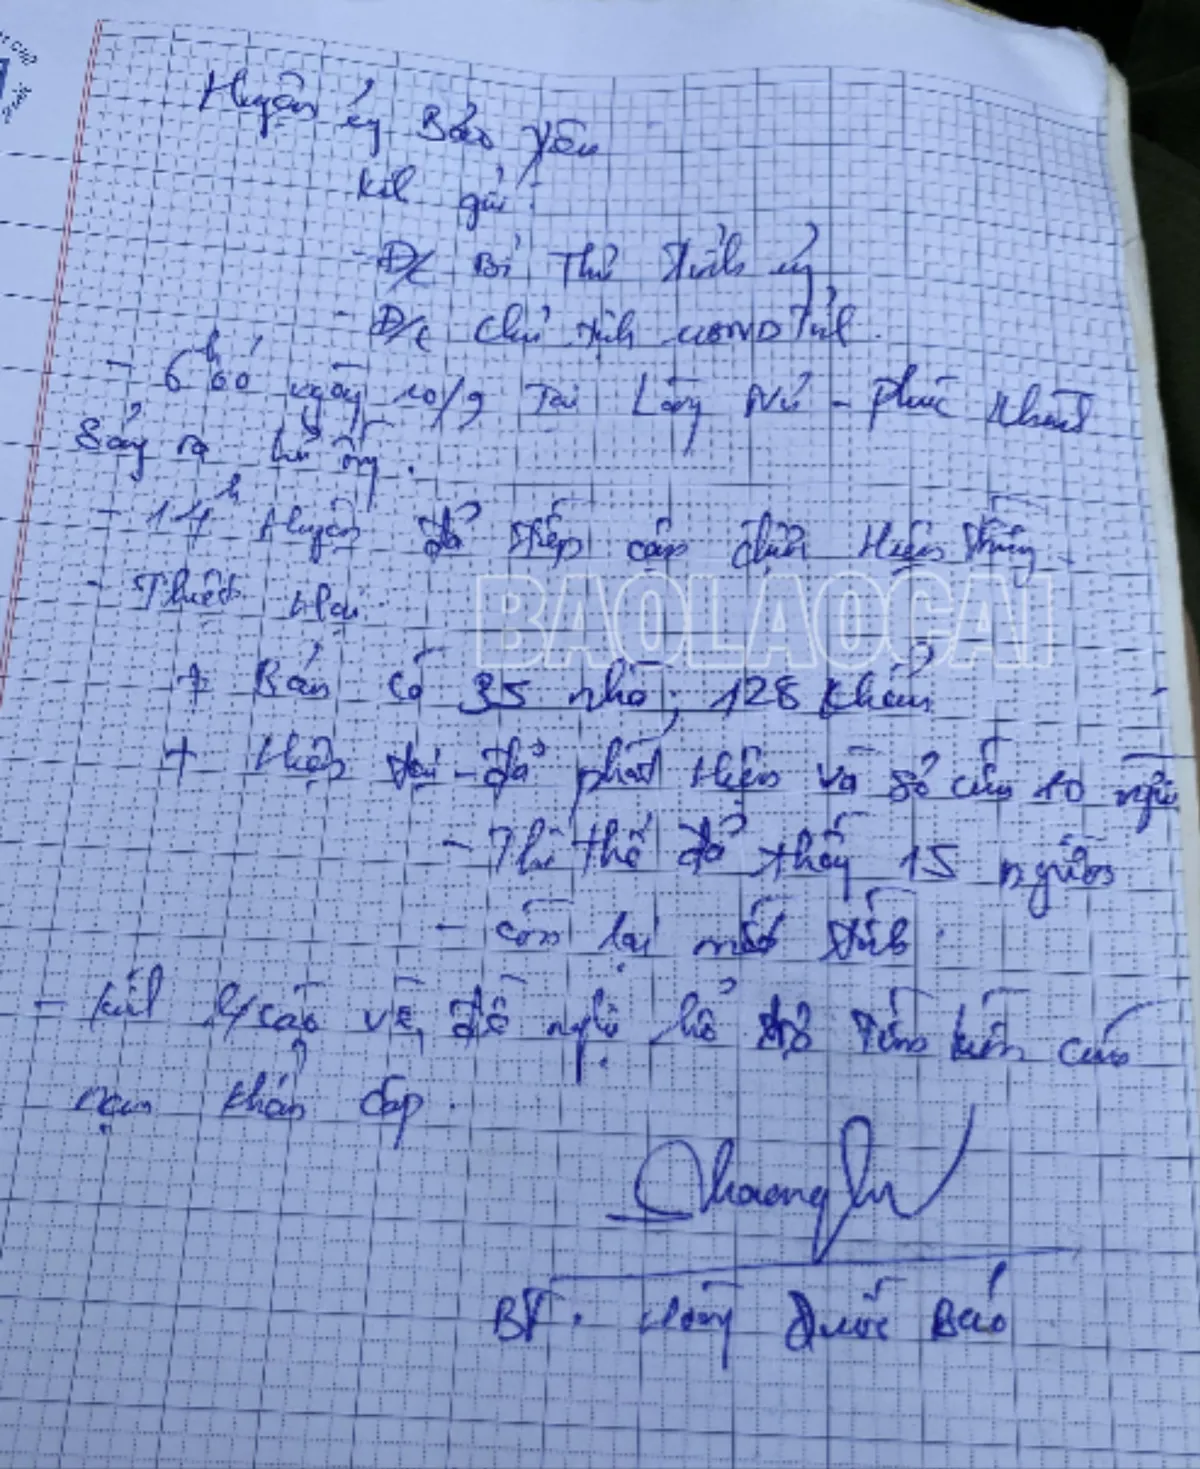 Huyện ủy Bảo Yên
Kính gửi:
- Đ/c Bí Thư Tỉnh ủy
- Đ/c Chủ tịch UBND Tỉnh.
- 6h00 ngày 10/9 Tại Làng Nủ - Phúc Khánh
Sảy ra lũ ống.
- 14h Huyện đã tiếp cận được Hiện trường
- Thiệt Hại
BAOLAOCAI
+ Bản có 35 nhà; 128 khẩu
+ Hiện tại - đã phát Hiện và sơ cứu 10 người
- Thi thể đã thấy 15 người
- còn lại mất tích.
- Kính b/cáo và đề nghị hỗ trợ Tìm kiếm cứu
nạn khẩn cấp.
BT. Hoàng Quốc Bảo